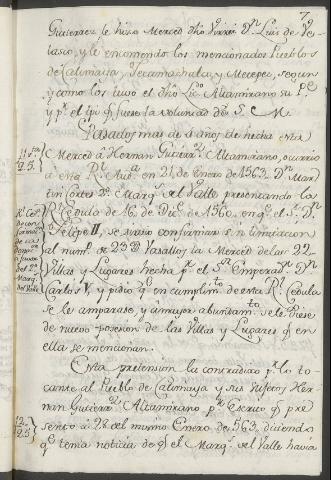 7
Gutierrez le hizo Merced dho Virrei Dn Luis de Ve-
lasco, y le encomendo los mencionados Pueblos
de Calimaya, Tecamachalco, y Metepec, segun
y como los tuvo el dho Licdo Altamirano su Pe
y pr el tpo q fuese la voluntad de S. M.
Pasados mas de 4 años de hecha esta
Merced a Hernan Gutierrz Altamirano, ocurrio
a esta Rl Auda en 21 de Enero de 1563 Dn Mar-
tin Cortes Dn Marqs del Valle presentando la
Rl Cedula de 16 de Dice de 1560 en qe el Sr Dn
Felipe II, se sirvio confirmar sin limitacion
al numo de 23D Vasallos la Merced delas 22
Villas y Lugares hecha pr el Sr Emperador Dn
Carlos V, y pidio qe en cumplimto de esta Rl Cedula
se le amparase, y a mayor abundamto se le diese
de nuevo posesion de las Villas y Lugares q en
ella se mencionan.
Esta pretension la contradixo pr lo to-
cante al Pueblo de Calimaya y sus sugetos Her-
nan Gutierrz Altamirano pr Escrito q pre-
sentó a 28 del mismo Enero de 563, diciendo
qe tenia noticia de q el Marqs del Valle havia
Rl Ced.
del Valle